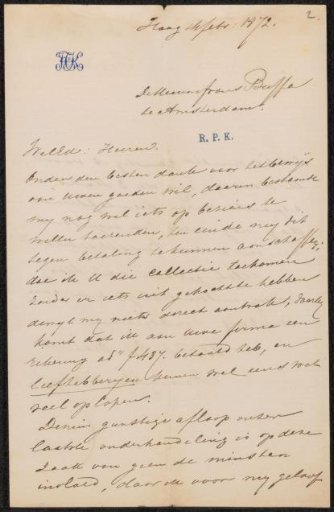 2.
Haag 16 febr. 1872.
De Heeren frans Buffa
te Amsterdam.
R. P. K.
WelEd: Heeren.
Onder den besten dank voor het bewijs
van uwen goeden wil, daarin bestaande
my nog wel iets op
willen toezenden, ten einde my dit
tegen betaling te kunnen aanschaffen,
doe ik U die collectie toekomen
zonder er iets uit gekocht te hebben
dewyl my niets direct aantrok,
komt dat ik aan uwe firma een
rekening ad f 487. betaald heb, en
liefhebberyen kunnen wel eens wat
veel oploopen.
De min gunstige afloop onzer
laatste onderhandeling is op deze
zaak van geen de minsten
invloed, daar ik voor my geloof